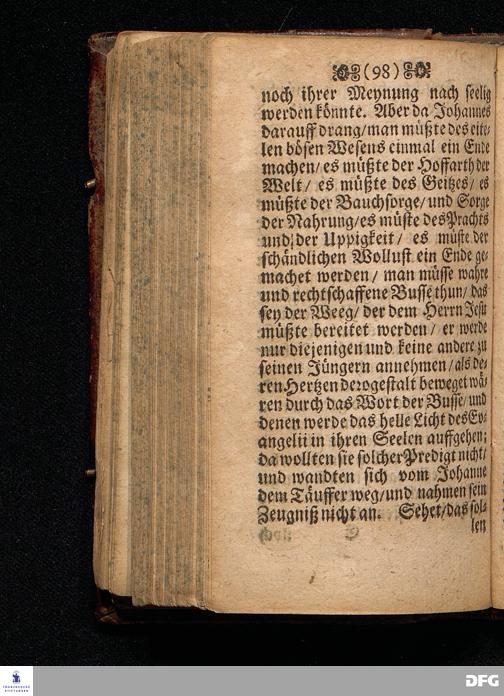 (98)
noch ihrer Meynung nach seelig
werden könnte. Aber da Johannes
darauff drang/ man müßte des eite-
len bösen Wesens einmal ein Ende
machen/ es müßte der Hoffarth der
Welt/ es müßte des Geitzes/ es
müßte der Bauchsorge/ und Sorge
der Nahrung/ es müste des Prachts
und der Uppigkeit/ es müste der
schändlichen Wollust ein Ende ge-
machet werden/ man müsse wahre
und rechtschaffene Busse thun/ das
sey der Weeg/ der dem Herrn Jesu
müßte bereitet werden/ er werde
nur diejenigen und keine andere zu
seinen Jüngern annehmen/ als de-
ren Hertzen derogestalt beweget wä-
ren durch das Wort der Busse/ und
denen werde das helle Licht des Ev-
angelii in ihren Seelen auffgehen;
da wollten sie solcher Predigt nicht/
und wandten sich vom Johanne
dem Täuffer weg/ und nahmen sein
Zeugniß nicht an. Sehet/ das sol-
len
FRANCKESCHE
STIFTUNGEN
DFG